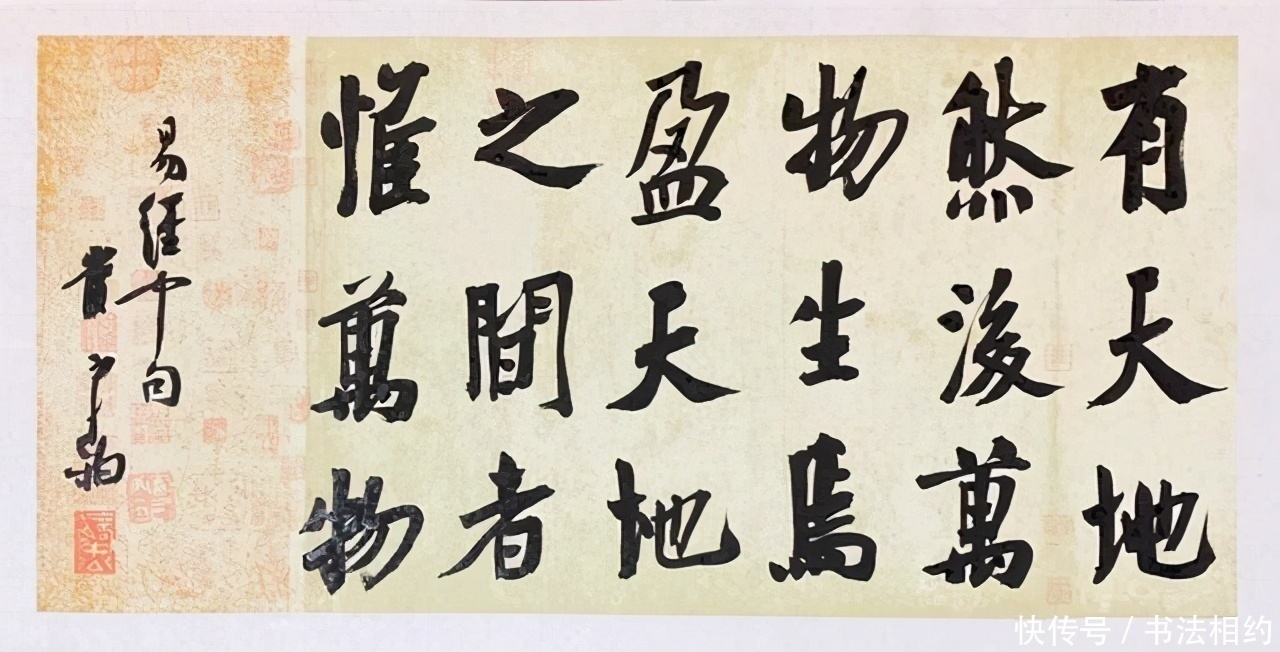 有天地
然後萬
物生焉
盈天地
之間者
惟萬物
易經中句
快传号 / 书法相约